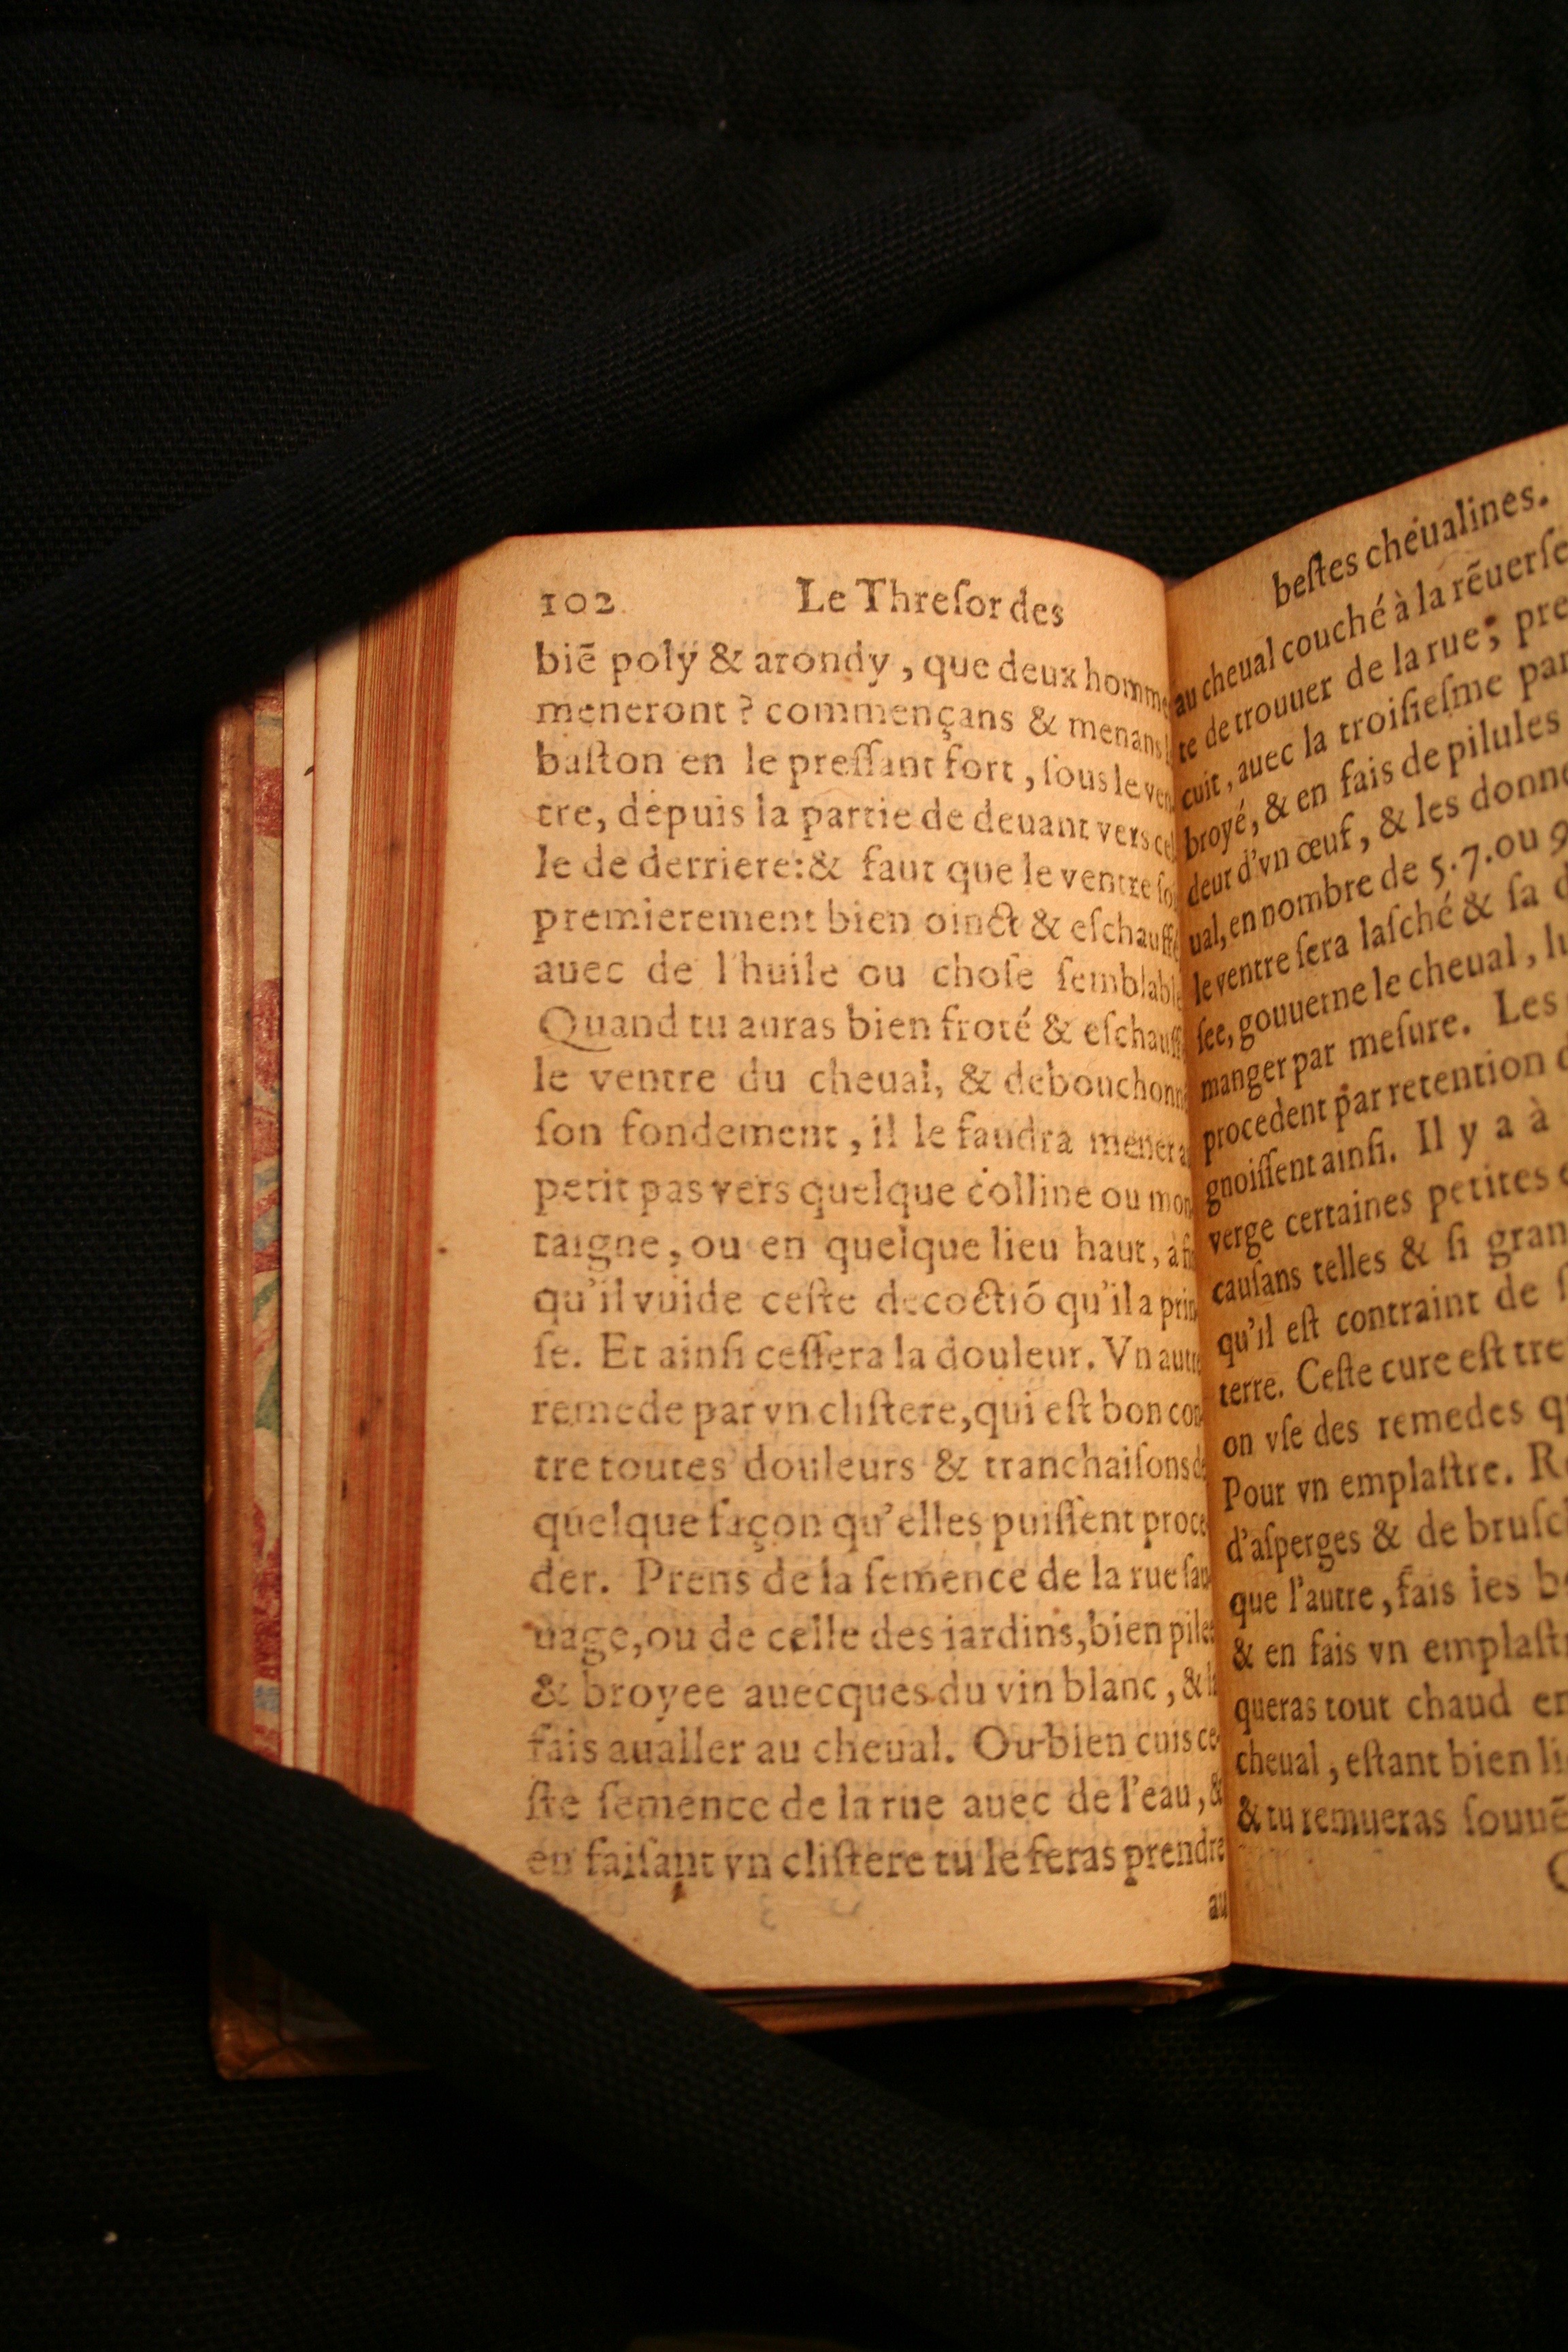 102 Le Threſor des
biē poly & arondy, que deux homme
meneront? commençans & menans
baſton en le preſſant fort, ſous le ven
tre, depuis la partie de deuant vers cel
le de derriere: & faut que le ventre ſo
premierement bien oinct & eſchauffé
auec de l'huile ou choſe ſemblable
Quand tu auras bien froté & eſchauff
le ventre du cheual, & debouchonn
ſon fondement, il le faudra mener a
petit pas vers quelque colline ou mon
taigne, ou en quelque lieu haut, afi
qu'il vuide ceſte decoctiō qu'il a prin
ſe. Et ainſi ceſſera la douleur. Vn autre
remede par vn cliſtere, qui eſt bon con
tre toutes douleurs & tranchaiſons de
quelque façon qu'elles puiſſent proce
der. Prens de la ſemence de la rue ſau
uage, ou de celle des iardins, bien pilee
& broyee auecques du vin blanc, & l
fais aualler au cheual. Ou bien cuis ce
ſte ſemence de la rue auec de l'eau, &
en faiſant vn cliſtere tu le feras prendre
au
beſtes cheualines.
au cheual couché à la rēuerſe
te de trouuer de la rue; pre
cuit, auec la troiſieſme par
broyé, & en fais de pilules
deur d'vn œuf, & les donne
ual, en nombre de 5. 7. ou 9
le ventre ſera laſché & ſa d
ſee, gouuerne le cheual, lu
manger par meſure. Les
procedent par retention d
gnoiſſent ainſi. Il y a à
verge certaines petites e
cauſans telles & ſi gran
qu'il eſt contraint de ſ
terre. Ceſte cure eſt tre
on vſe des remedes q
Pour vn emplaſtre. R
d'aſperges & de bruſc
que l'autre, fais les b
& en fais vn emplaſt
queras tout chaud en
cheual, eſtant bien li
& tu remueras ſouuē